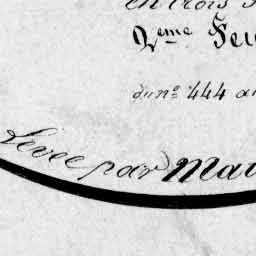 en trois
2eme Feu
du no 444 au
Levée par Mat